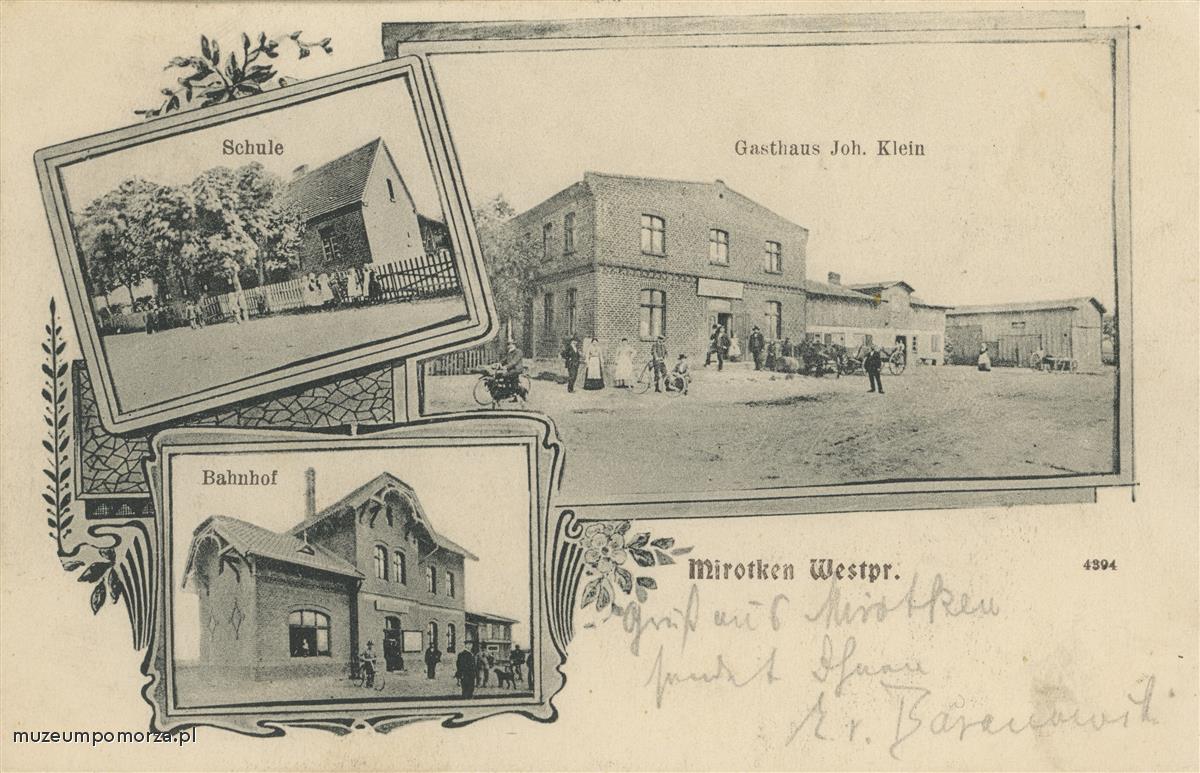 Schule
Gasthaus Joh. Klein
Bahnhof
Mirotken Westpr.
4394
Gruß aus Mirotken
sendet Ihnen
muzeumpomorza.pl